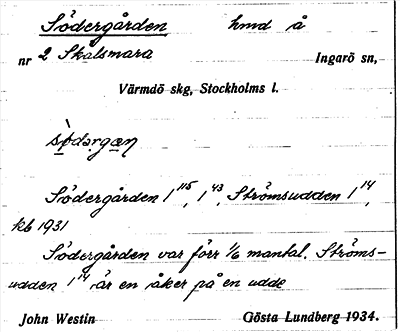 Södergården hmd å
nr 2 Skälsmara Ingarö sn,
Värmdö skg, Stockholms l.
Södergården 1¹¹⁵, 1⁴³, Strömsudden 1¹⁴,
kb 1931
Södergården var förr 1/6 mantal. Ströms-
udden 1¹⁴ är en åker på en udde
John Westin Gösta Lundberg 1934.